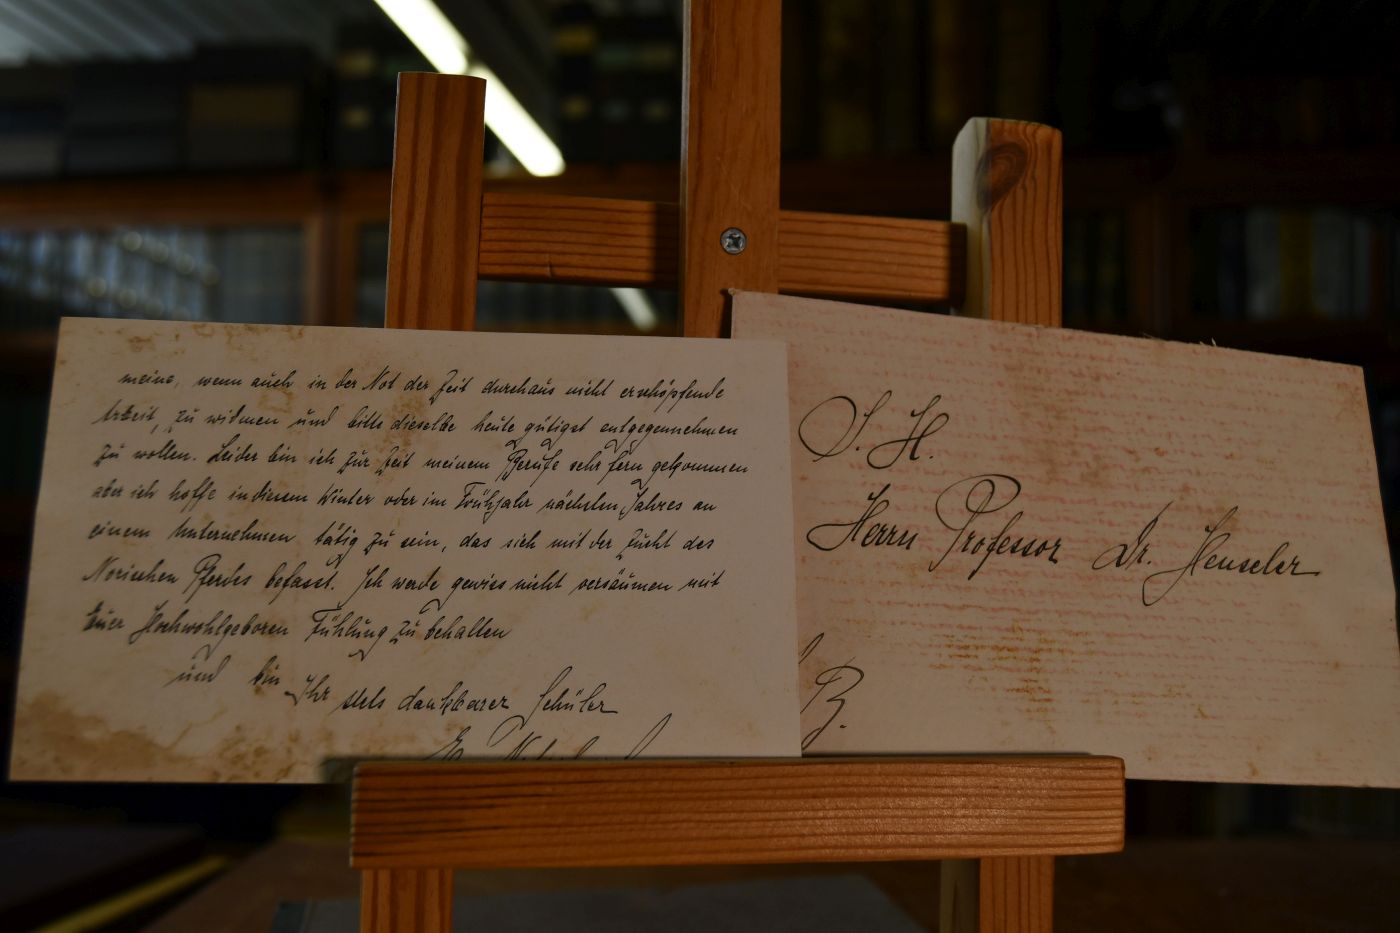 meine, wenn auch in der Not der Zeit durchaus nicht erschöpfende
Arbeit, zu widmen und bitte dieselbe heute gütigst entgegennehmen
zu wollen. Leider bin ich zur Zeit meinem Berufe sehr fern gekommen
aber ich hoffe in diesem Winter oder im Frühjahr nächsten Jahres an
einem Unternehmen tätig zu sein, das sich mit der Zucht des
Norischen Pferdes befasst. Ich werde gewiss nicht versäumen mit
Euer Hochwohlgeboren Fühlung zu behalten
und bin Ihr stets dankbarer Schüler
S. H.
Herrn Professor Dr. Henseler
B.